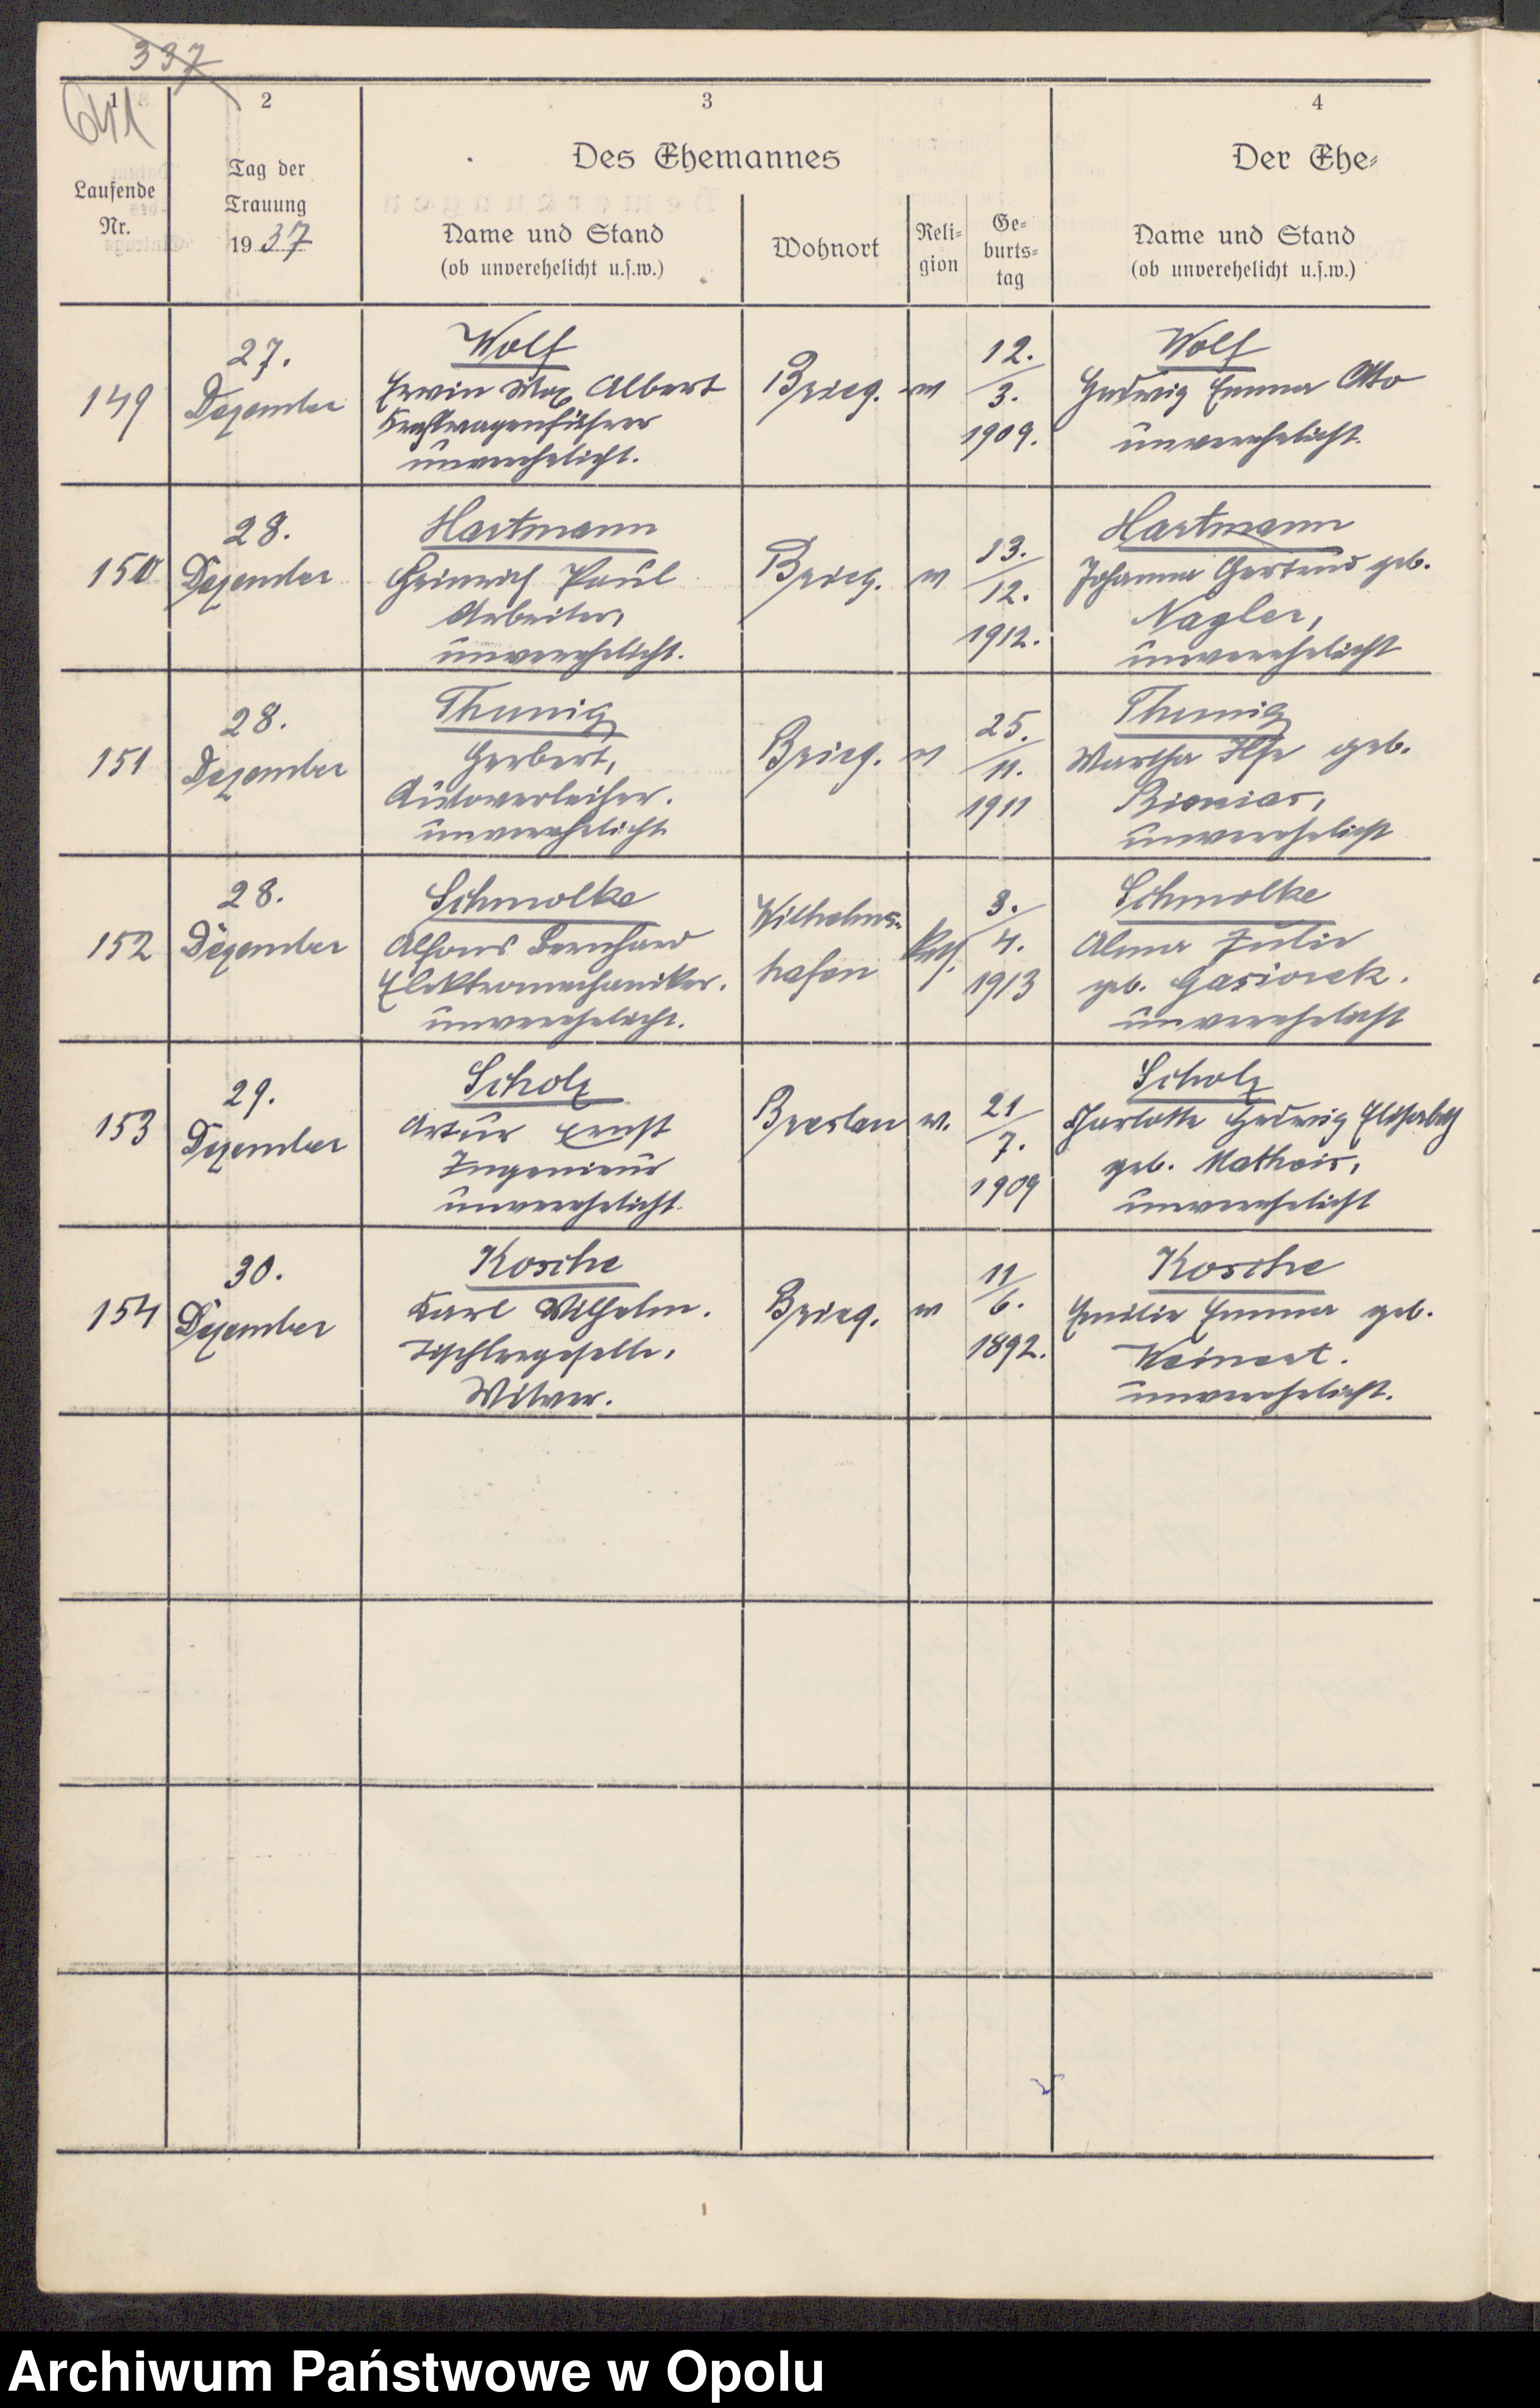 337
641
1
2
3
4
Des Ehemannes
Der Ehe-
Laufende
Nr.
Tag der
Trauung
1937
Name und Stand
(ob unverehelicht u.s.w.)
Wohnort
Reli-
gion
Ge-
burts-
tag
Name und Stand
(ob unverehelicht u.s.w.)
149
27.
Dezember
Wolf
Erwin Max Albert
Kraftwagenführer
unverehelicht.
Brieg.
ev
12.
3.
1909.
Wolf
Hedwig Emma Otto
unverehelicht.
150
28.
Dezember
Hartmann
Heinrich Paul
Arbeiter,
unverehelicht.
Brieg.
ev
13.
12.
1912.
Hartmann
Johanna Gertrud geb.
Nagler,
unverehelicht
151
28.
Dezember
Thunig
Herbert,
Autoverleiher.
unverehelicht
Brieg.
ev
25.
11.
1911
Thunig
Martha Ilse geb.
unverehelicht
152
28.
Dezember
Schmolke
Alfons Bernhard
Elektromechaniker.
unverehelicht.
Wilhelms-
hafen
kath.
3.
4.
1913
Schmolke
Alma Julie
geb. Gasiorek.
unverehelicht
153
29.
Dezember
Scholz
Artur Ernst
Ingenieur
unverehelicht.
Breslau
ev.
21
7.
1909
Scholz
Charlotte Hedwig Elisabeth
geb. Matheis,
unverehelicht
154
30.
Dezember
Kosche
Karl Wilhelm.
Tischlergeselle,
Witwer.
Brieg.
ev
11
6.
1892.
Kosche
Emilie Emma geb.
Weinert.
unverehelicht.
Archiwum Państwowe w Opolu